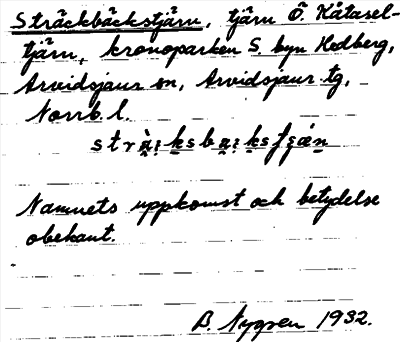 Sträckbäckstjärn, tjärn Ö. Kåtasel-
tjärn, kronoparken S. byn Hedberg,
Arvidsjaur sn, Arvidsjaur tg,
Norrb. l.
Namnets uppkomst och betydelse
obekant.
B. Nygren 1932.